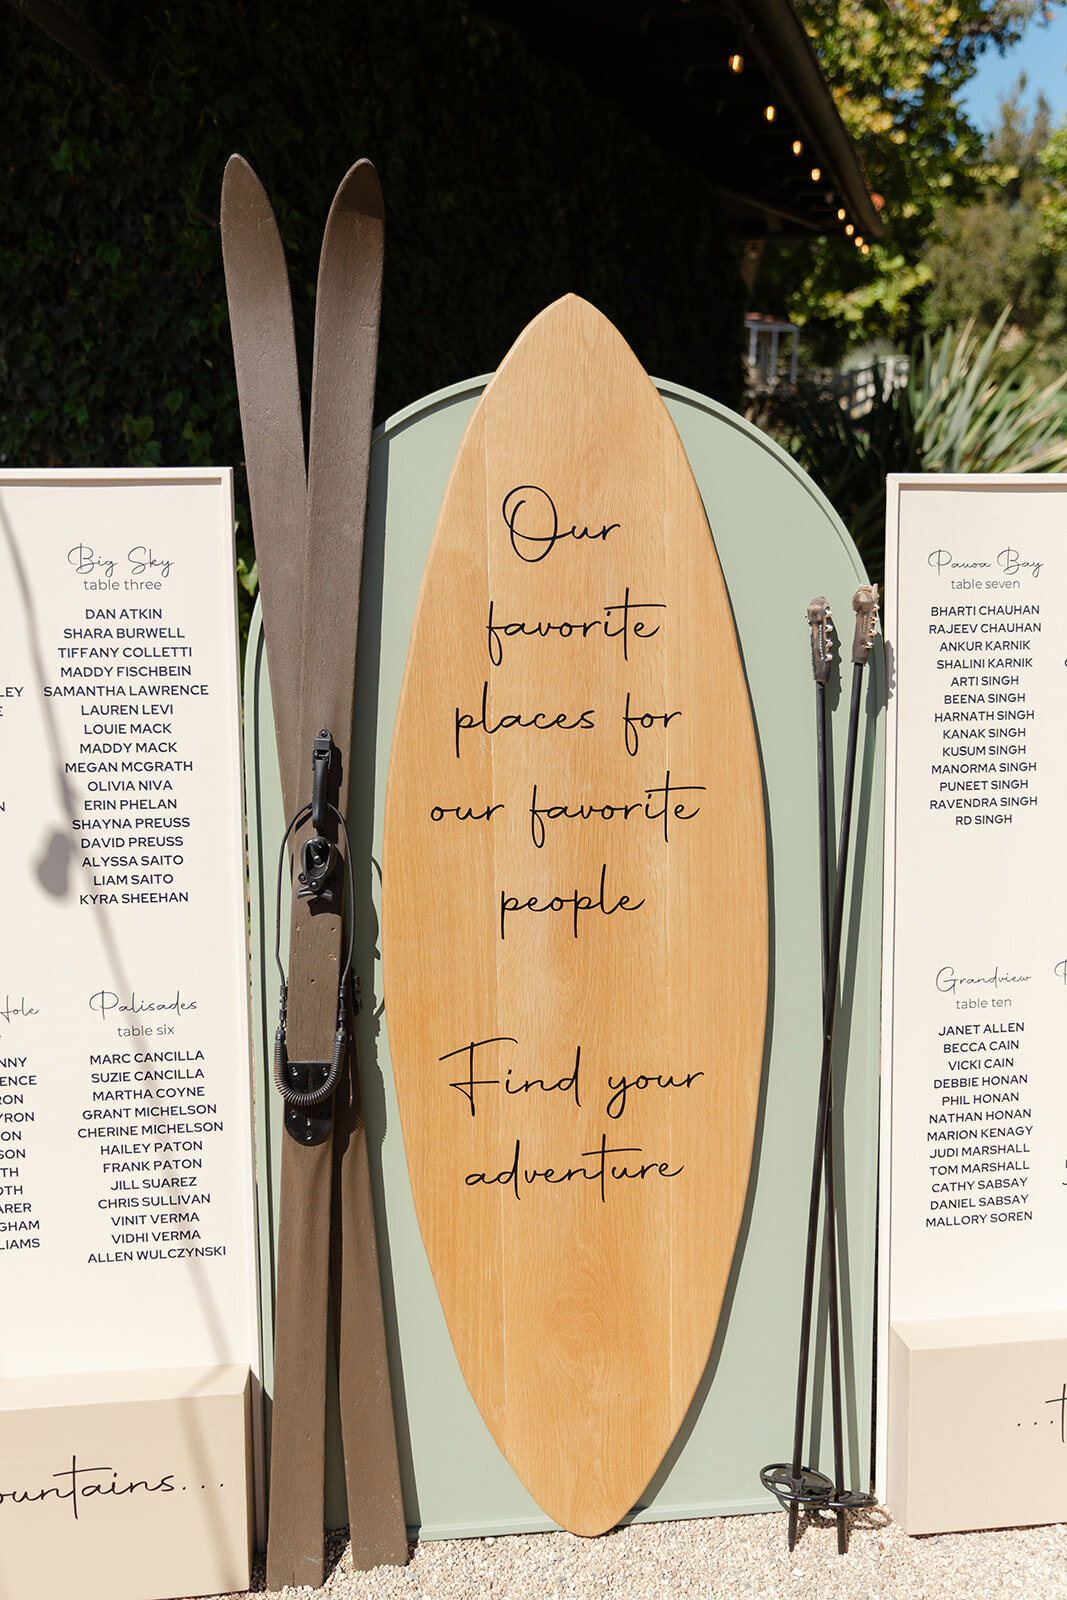 Our
favorite
places for
our favorite
people
Find your
adventure
Big Sky
table three
DAN ATKIN
SHARA BURWELL
TIFFANY COLLETTI
MADDY FISCHBEIN
SAMANTHA LAWRENCE
LAUREN LEVI
LOUIE MACK
MADDY MACK
MEGAN MCGRATH
OLIVIA NIVA
ERIN PHELAN
SHAYNA PREUSS
DAVID PREUSS
ALYSSA SAITO
LIAM SAITO
KYRA SHEEHAN
Palisades
table six
MARC CANCILLA
SUZIE CANCILLA
MARTHA COYNE
GRANT MICHELSON
CHERINE MICHELSON
HAILEY PATON
FRANK PATON
JILL SUAREZ
CHRIS SULLIVAN
VINIT VERMA
VIDHI VERMA
ALLEN WULCZYNSKI
Pauoa Bay
table seven
BHARTI CHAUHAN
RAJEEV CHAUHAN
ANKUR KARNIK
SHALINI KARNIK
ARTI SINGH
BEENA SINGH
HARNATH SINGH
KANAK SINGH
KUSUM SINGH
MANORMA SINGH
PUNEET SINGH
RAVENDRA SINGH
RD SINGH
Grandview
table ten
JANET ALLEN
BECCA CAIN
VICKI CAIN
DEBBIE HONAN
PHIL HONAN
NATHAN HONAN
MARION KENAGY
JUDI MARSHALL
TOM MARSHALL
CATHY SABSAY
DANIEL SABSAY
MALLORY SOREN